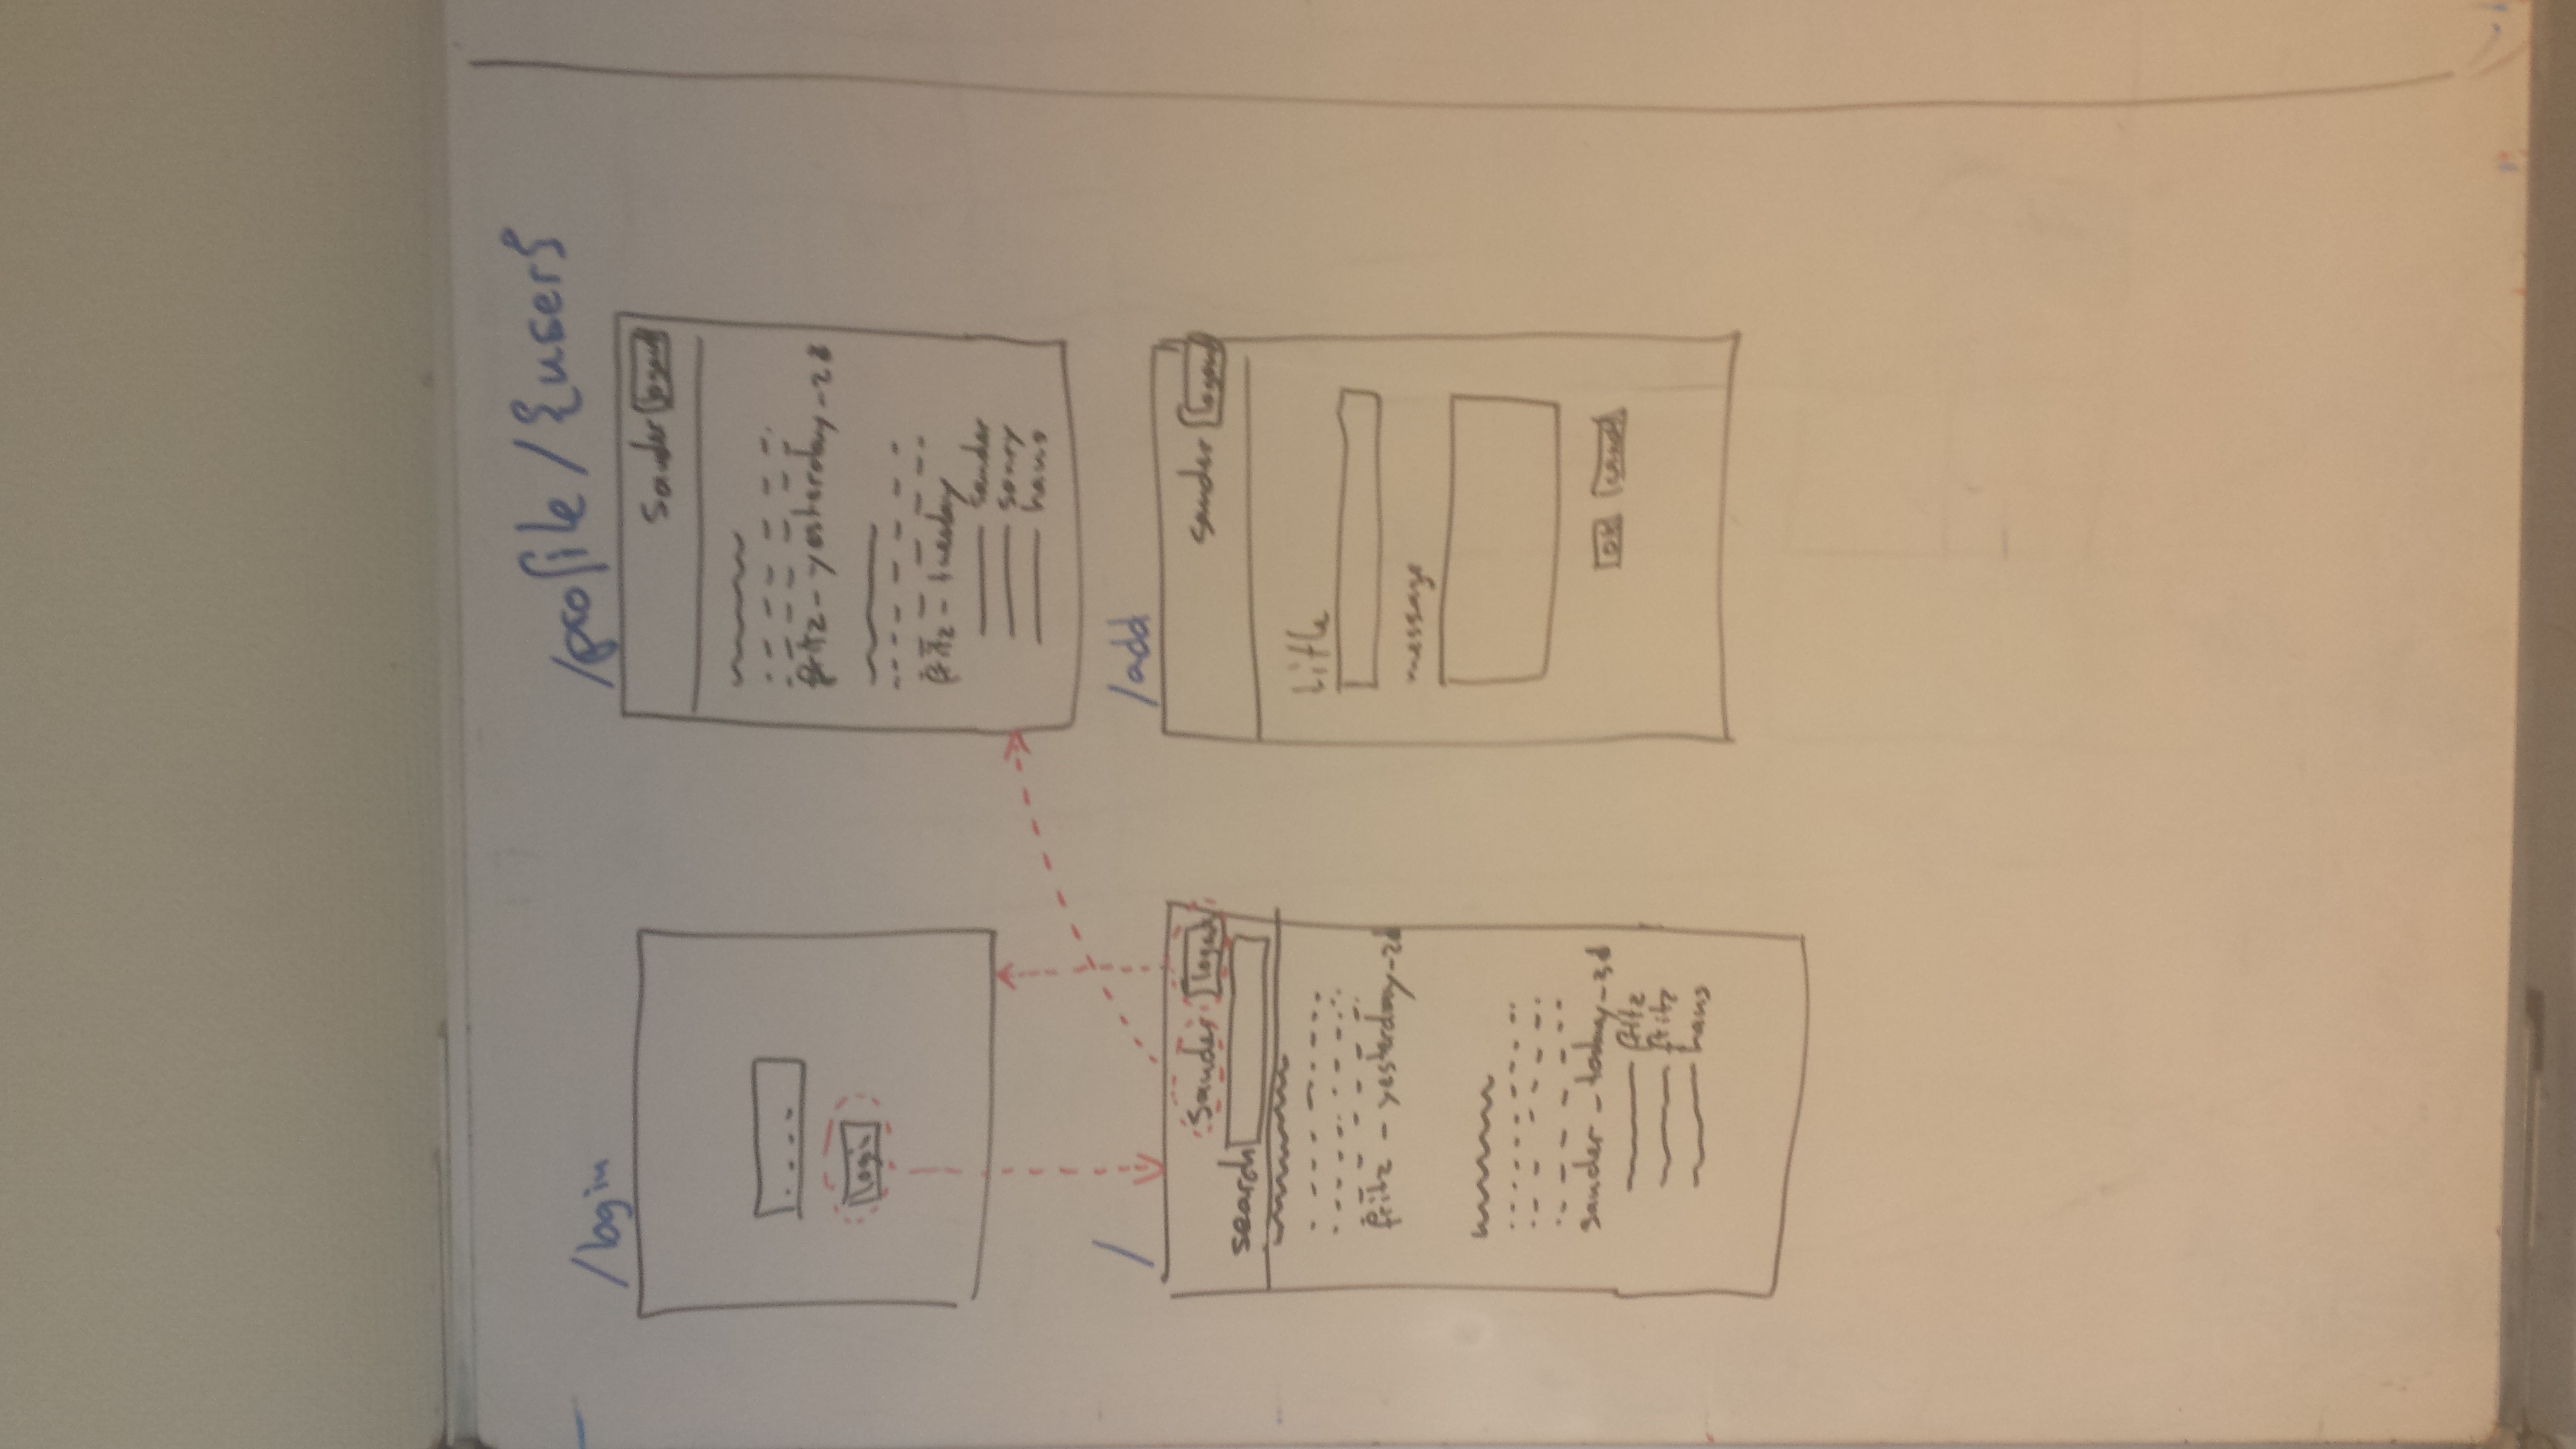 /login
login
/profile/{user}
Sander logout
fritz - yesterday - 2d
fritz - tuesday
sander
sonny
hans
/
Sander logout
search
fritz - yesterday - 2d
sander - today - 3d
fritz
fritz
hans
/add
sander logout
title
message
ok cancel